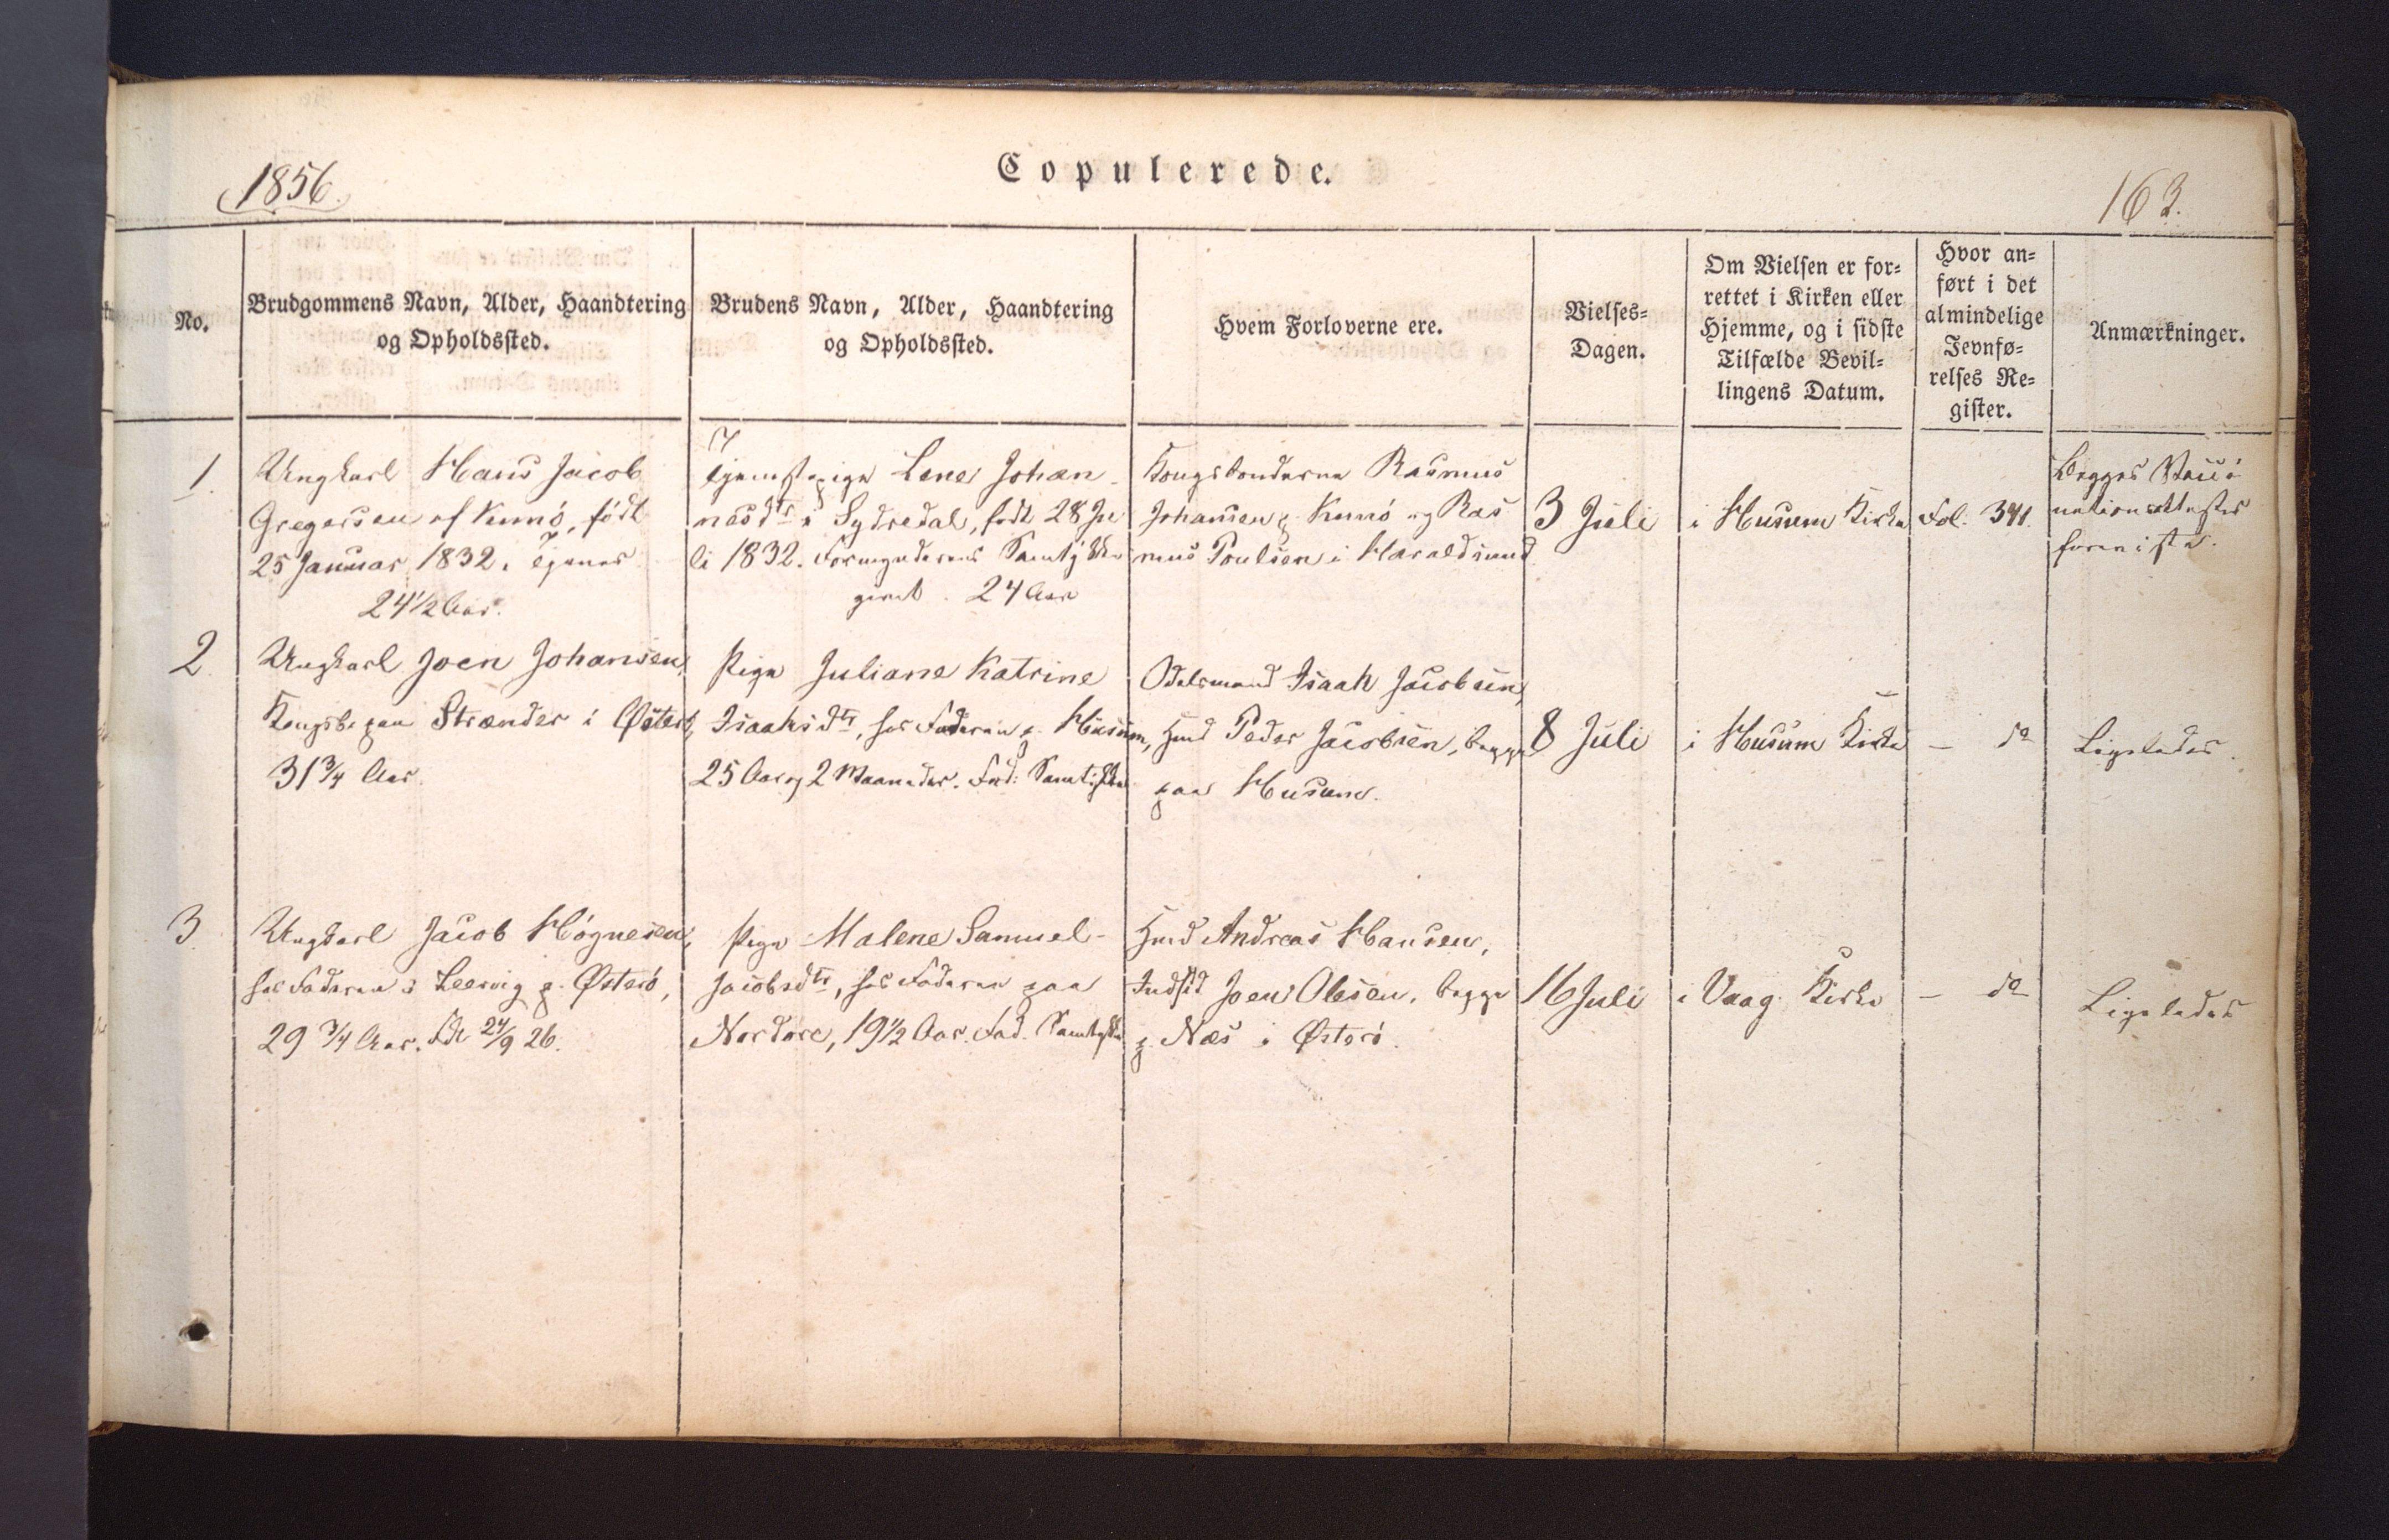 1856.
Copulerede.
163.
No.
Brudgommens Navn, Alder, Haandtering
og Opholdssted.
Brudens Navn, Alder, Haandtering
og Opholdssted.
Hvem Forloverne ere.
Vielses-
Dagen.
Om Vielsen er for-
rettet i Kirken eller
Hjemme, og i sidste
Tilfælde Bevil-
lingens Datum.
Hvor an-
ført i det
almindelige
Jevnfø-
relses Re-
gister.
Anmærkninger.
1.
Ungkarl Hans Jacob
Gregersen af Kunö, födt
25 Januar 1832. Tjener
24 1/2 Aar.
Tjenestepige Lene Johan-
nesdtr i Sydredal, født 28 Ju
li 1832. Formynderens Samtykke
givet. 24 Aar
Kongsbonderne Rasmus
Johansen p. Kunö og Ras
mus Poulsen i Haraldsund
3 Juli
i Husum Kirke
Fol. 341.
Begges Vacci-
nationsattester
foreviste.
2.
Ungkarl Joen Johansen,
Kongsb. paa Strænder i Østerö,
31 3/4 Aar.
Pige Juliane Katrine
Isaksdtr, hos Faderen p. Husum,
25 Aar og 2 Maaneder. Fad: Samtykke
Odelsmand Isaak Jacobsen,
Huusmd Peder Jacobsen, begge
paa Husum.
8 Juli
i Husum Kirke
— do
Ligeledes.
3.
Ungkarl Jacob Högnesen,
hos Faderen i Leervig p. Østerö,
29 3/4 Aar. Fdt 24/9 26.
Pige Malene Samuel-
Jacobsdtr, hos Faderen paa
Nordöre, 19 1/2 Aar. Fad. Samtykke
Andreas Hansen,
Joen Olesen, begge
p. Næs i Østerö.
16 Juli
i Vaag Kirke
— do
Ligeledes